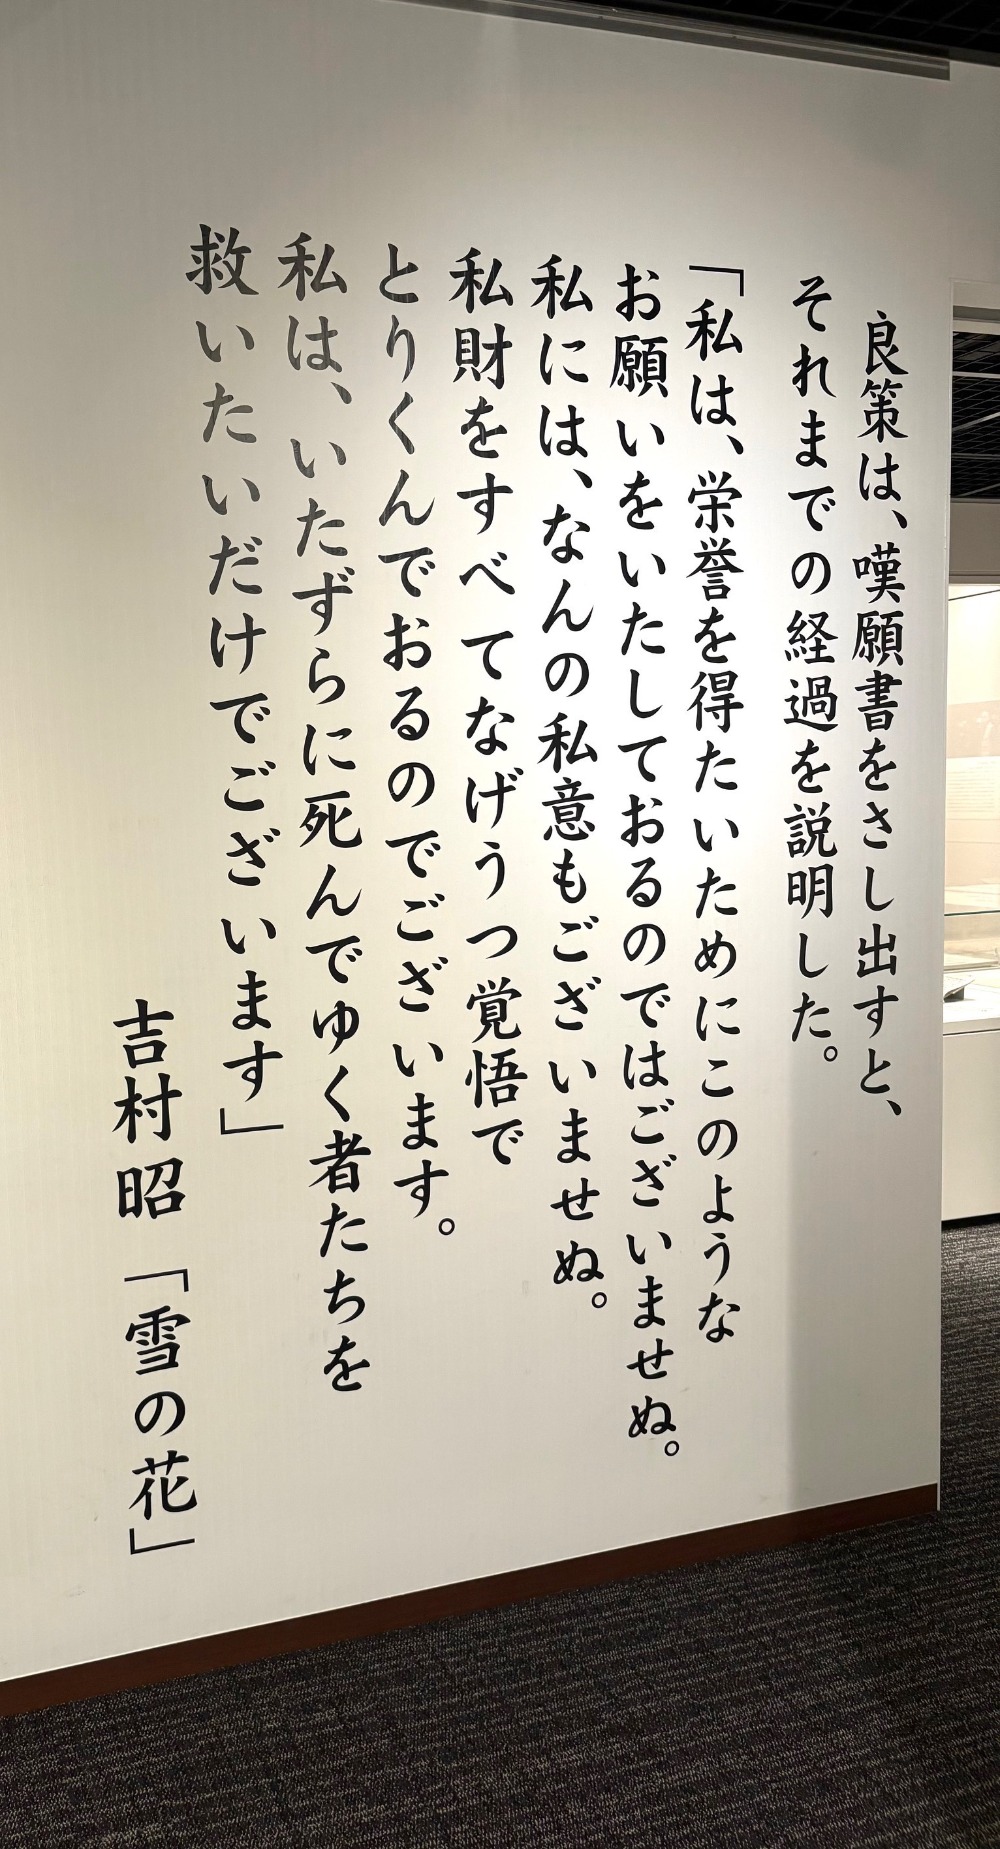 良策は、嘆願書をさし出すと、
それまでの経過を説明した。
「私は、栄誉を得たいためにこのような
お願いをいたしておるのではございませぬ。
私には、なんの私意もございませぬ。
私財をすべてなげうつ覚悟で
とりくんでおるのでございます。
私は、いたずらに死んでゆく者たちを
救いたいだけでございます」
吉村 昭 「雪の花」